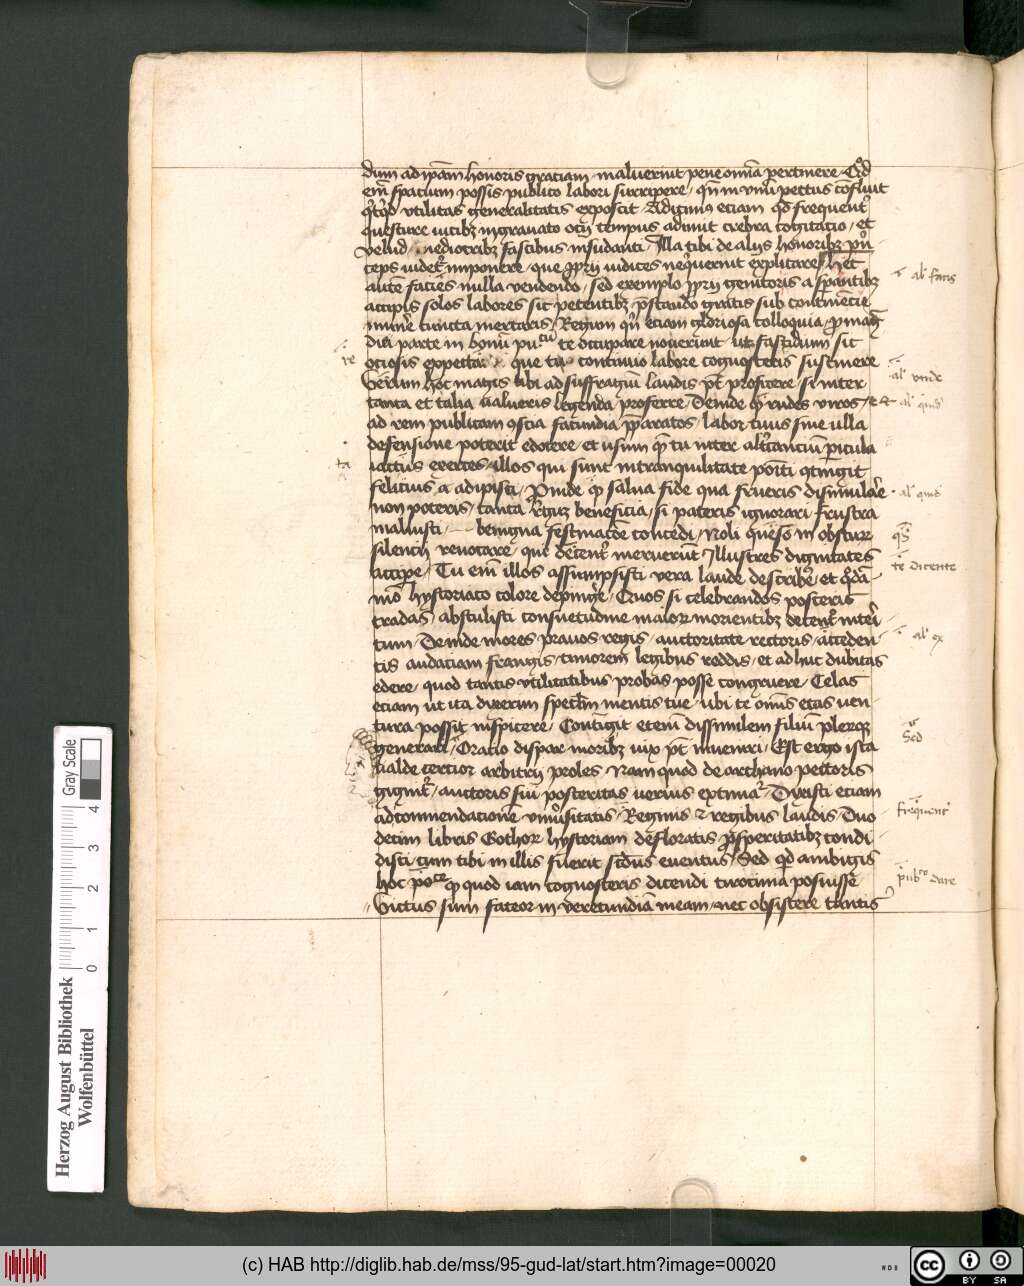 dum ad ip̄am honoris gratiam maluerint pene om̄ia pertinere Qd̄
em̄ spacium possis publico labori surripere qn̄ in vnū pectus cōfluit
qd̓qd utilitas generalitatis exposcit Adicim9 eciam qd̄ frequent̓
questure vicib3 ingrauato ocij tempus adimit crebra cogitacio et
velud mediocrib3 fascibus insudanti Illa tibi de alijs honorib3 pn̓
ceps videt̓ imponere que pprij iudices neq̓uerint explicare hec
aūte facies nulla vendendo sed exemplo pprij genitoris a sp̄antib3
accipis solos labores sic petentib3 p̄stando gratis sub continēcie
munere cuncta mercaris Regum qn̄ etiam gloriosa colloquia p magᷓ
diei parte in bonū pu.cū te occupare nouerint ut fastidium sit
ociosis expectare que tu continuo labore cognosceris sustinere
Verum hoc magis tibi ad suffragiū laudis pt̄ proficere si inter
tanta et talia valueris legenda proferre Deinde qᷓ rudes viros et
ad rem publicam 9scia facundia pparatos labor tuus sine ulla
offensione poterit edocere et usum qᷓ tu inter alt̓cantiū picula
iactus exerces illos qui sunt in tranquilitate positi 9tingit
felicius a adipisci Proinde qᷓ salua fide qua frueris dissimulare
non poteris tanta r̄gu3 beneficia si pateris ignorari frustra
maluisti benigna festinacōe concedi Noli queso in obscur
silencij reuocare qui dicent̓ meruerūt Illustres dignitates
accipe Tu em̄ illos assumpsisti vera laude describe et qd̄ā
mō hystoriaco colore depinge Quos si celebrandos posteris
tradas abstulisti consuetudine maior morientib3 decent̓ interi
tum Deinde mores prauos regis auctoritate rectoris acceden
tis audaciam frangis timorem legibus reddis et adhuc dubitas
edere quod tantis vtilitatibus probas posse congruere Celas
eciam ut ita dixerim specl̄m mentis tue ubi te om̄is etas uen
tura possit inspicere Contigit etenī dissimilem filiū plerq3
generari Oratio dispar morib3 uix pt̄ inueniri Est ergo ista
valde certior arbitrij proles Nam quod de archano pectoris
gignit̓ auctoris sui posteritas verius extimat̓ Dixisti eciam
ad cōmendacionem vniu̓sitatis Reginis & regibus laudis Duo
decim libris Gothor hystoriam defloratis p̄speritatib3 condi
disti cum tibi in illis fuerit scd̄us euentus Sed qd̄ ambigis
hoc poce qᷓ quod iam cognosceris dicendi tirocinia posuisse
Victus sum fateor in verecundiā meam nec obsistere tantis
al̓ facis
te
al̓ vnde
al̓ quid
ta
al̓ quid
qᷓ
te dicente
al̓ ex
Sed
frequent̓
pub.co dare
Herzog August Bibliothek
Wolfenbüttel
Gray Scale
0 1 2 3 4
(c) HAB http://diglib.hab.de/mss/95-gud-lat/start.htm?image=00020
WDB
cc BY SA